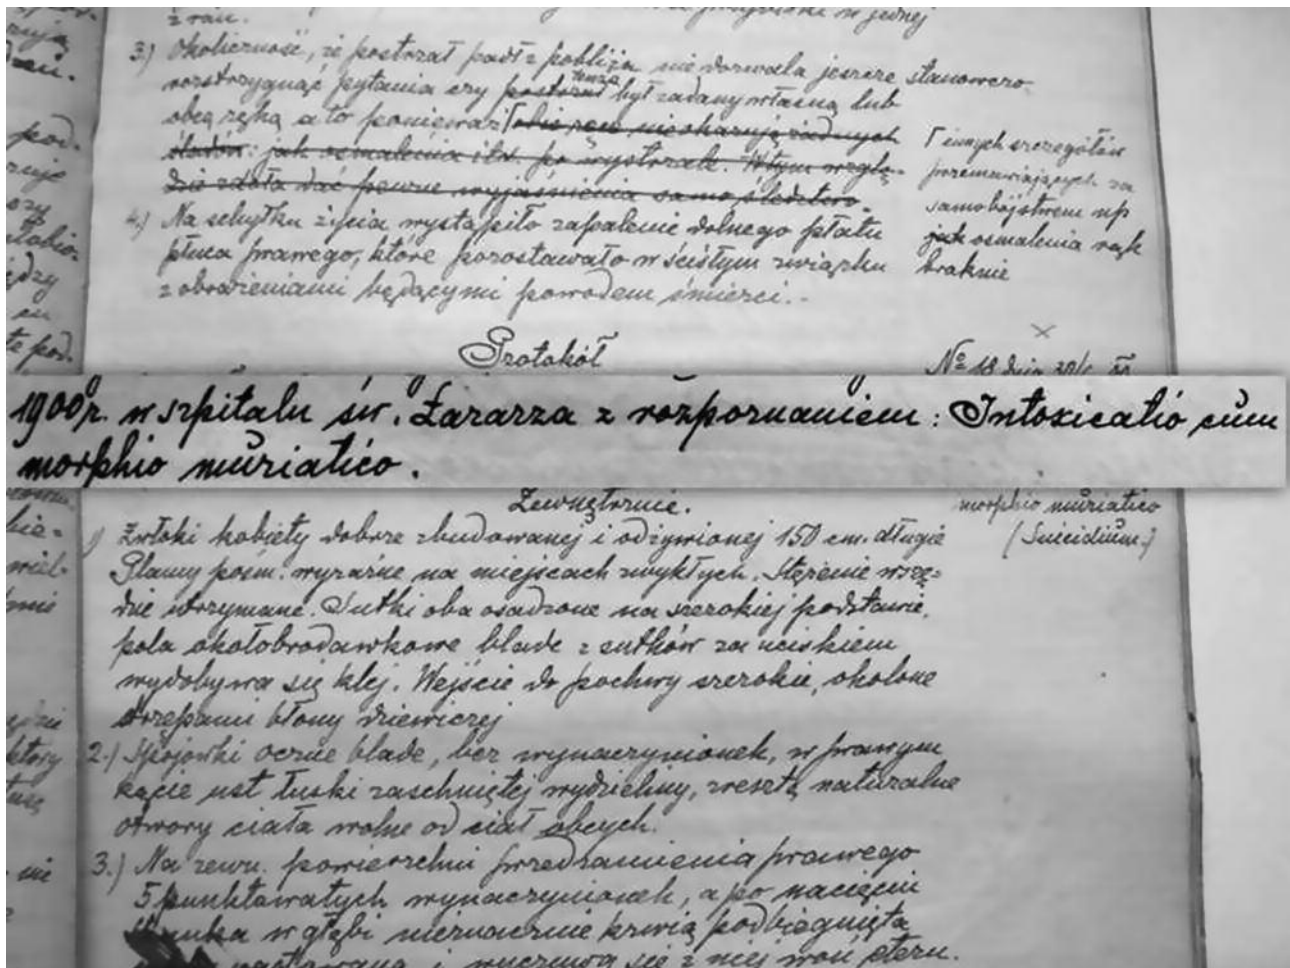 z ran.
w jednej
3.) Okoliczność, że postrzał padł z pobliża nie dozwala jeszcze stanowczo
rozstrzygnąć pytania czy postrzał tenże był zadany własną lub
obcą ręką a to ponieważ Γ obie ręce nie okazują żadnych
śladów: jak osmalenia itd. po wystrzale. W tym wzglę-
dzie zdoła dać pewne wyjaśnienia samo śledztwo.
Γ innych szczegółów
przemawiających za
samobójstwem np
jak osmalenia rąk
braknie
4.) Na schyłku życia wystąpiło zapalenie dolnego płatu
płuca prawego, które pozostawało w ścisłym związku
z obrażeniami będącymi powodem śmierci.-
Protokół
№ 18 dnia
1900 r. w szpitalu św. Łazarza z rozpoznaniem: Intoxicatio cum
morphio muriatico.
Zewnętrznie.
morphio muriatico
(Suicidium.)
1) Zwłoki kobiety dobrze zbudowanej i odżywionej 150 cm. długie
Plamy pośm. wyraźne na miejscach zwykłych. Stężenie wszę-
dzie utrzymane. Sutki oba osadzone na szerokiej podstawie,
pola okołobrodawkowe blade z sutków za uciskiem
wydobywa się klej. Wejście do pochwy szerokie, okolone
strzępami błony dziewiczej
2.) Spojówki oczne blade, bez wynaczynionek, w prawym
kącie ust łuski zaschniętej wydzieliny, zresztą naturalne
otwory ciała wolne od ciał obcych.
3.) Na zewn. powierzchni przedramienia prawego
5 punktowatych wynaczynionek, a po nacięciu
tkanka w głębi nieznacznie krwią podbiegnięta
i wyczuwa się z niej woń eteru.